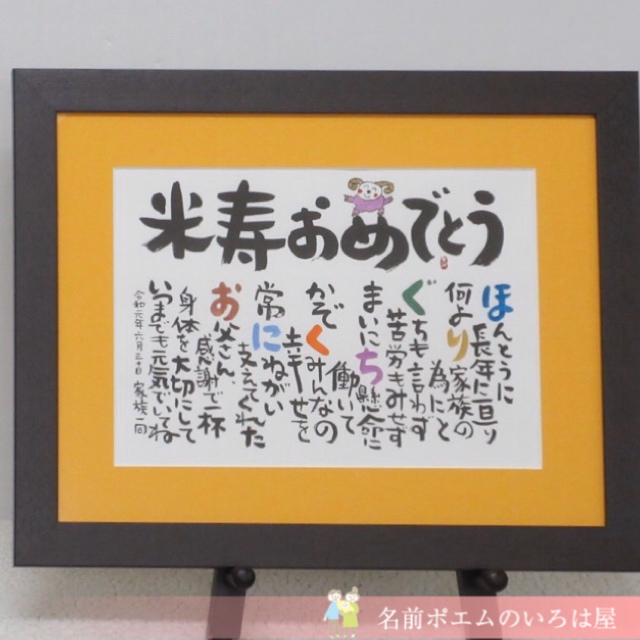 米寿おめでとう
ほんとうに
長年に亘り
何より家族の
為にと
ぐちも言わず
苦労もみせず
まいにち懸命に
働いて
かぞくみんなの
幸せを
常にねがい
支えてくれた
お父さん、
感謝で一杯
身体を大切にして
いつまでも元気でいてね
令和元年六月三十日 家族一同
名前ポエムのいろは屋